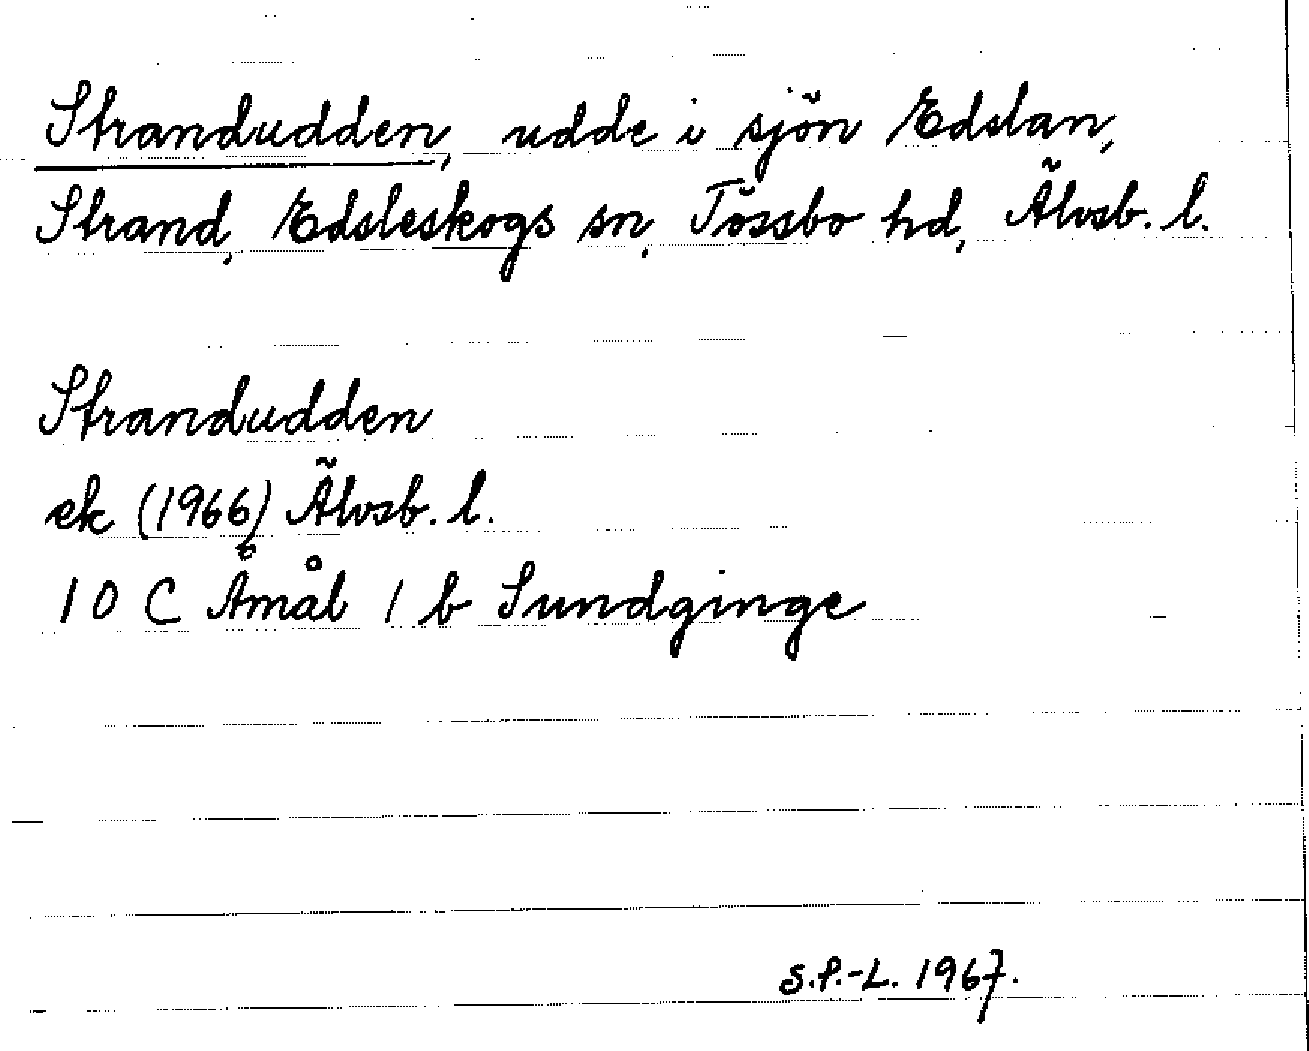 Strandudden, udde i sjön Edslan,
Strand, Edsleskogs sn, Tössbo hd, Älvsb. l.
Strandudden
ek (1966) Älvsb. l.
10 C Åmål 1 b Sundginge
S.P.-L. 1967.